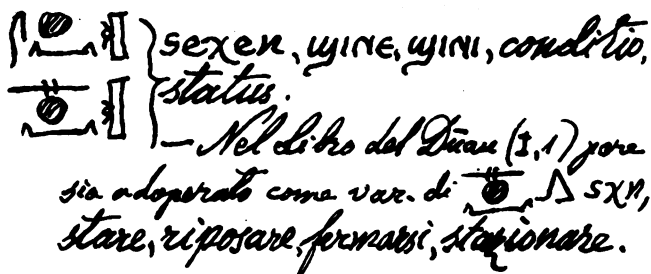 𓋴𓐍𓈖𓏛 sexen, ϣⲓⲛⲉ, ϣⲓⲛⲓ, conditio,
𓊃𓐍𓈖𓏛 status.
— Nel Libro del Dūau (I,1) pare
sia adoperato come var. di 𓊃𓐍𓈖𓂻 sxn,
stare, riposare, fermarsi, stazionare.